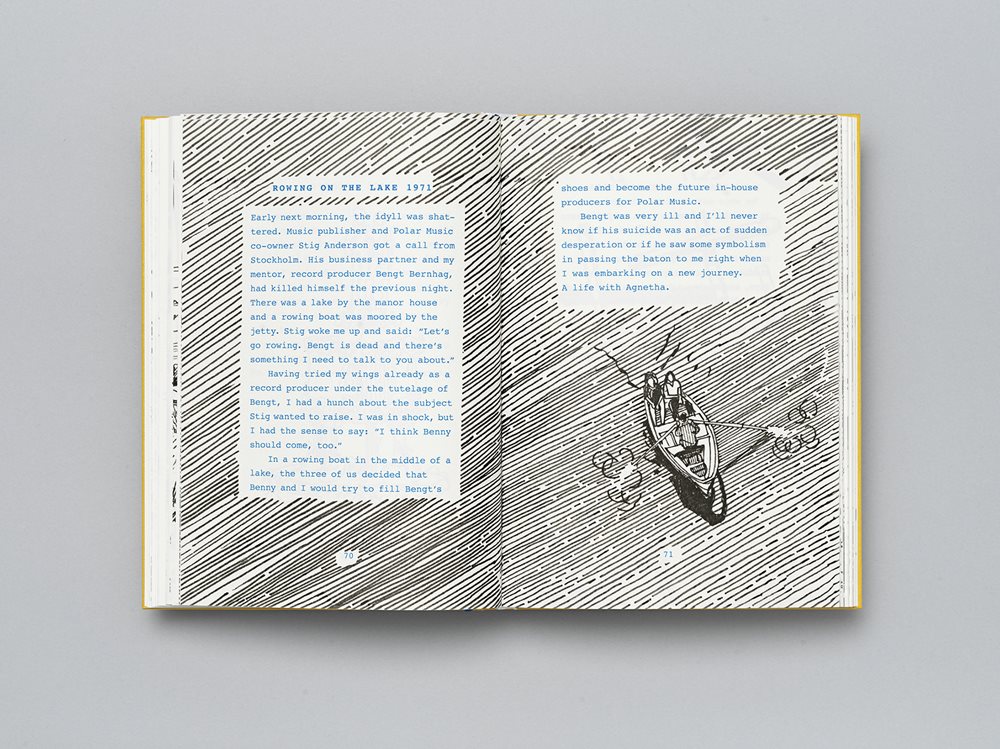 ROWING ON THE LAKE 1971
Early next morning, the idyll was shat-
tered. Music publisher and Polar Music
co-owner Stig Anderson got a call from
Stockholm. His business partner and my
mentor, record producer Bengt Bernhag,
had killed himself the previous night.
There was a lake by the manor house
and a rowing boat was moored by the
jetty. Stig woke me up and said: “Let’s
go rowing. Bengt is dead and there’s
something I need to talk to you about.”
Having tried my wings already as a
record producer under the tutelage of
Bengt, I had a hunch about the subject
Stig wanted to raise. I was in shock, but
I had the sense to say: “I think Benny
should come, too.”
In a rowing boat in the middle of a
lake, the three of us decided that
Benny and I would try to fill Bengt’s
70
shoes and become the future in-house
producers for Polar Music.
Bengt was very ill and I’ll never
know if his suicide was an act of sudden
desperation or if he saw some symbolism
in passing the baton to me right when
I was embarking on a new journey.
A life with Agnetha.
71